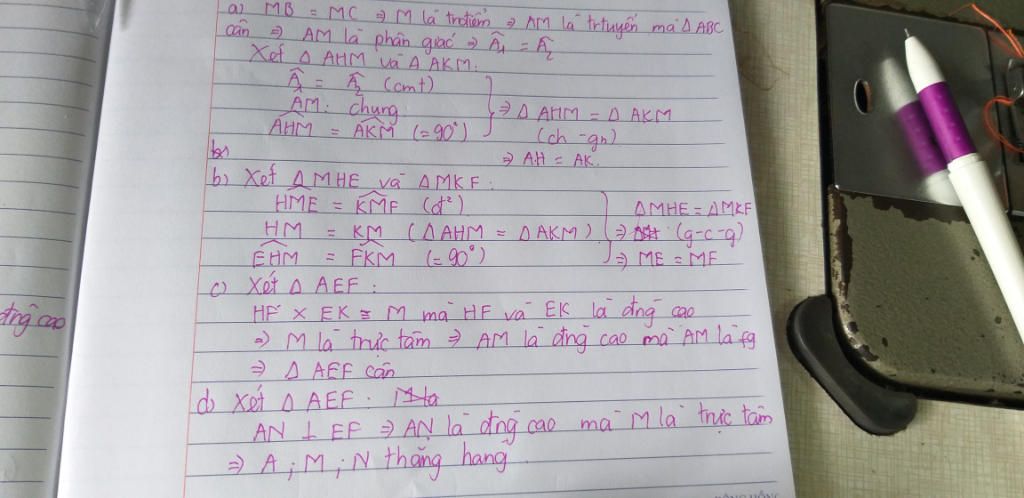 a) MB = MC ⇒ M là trđiểm ⇒ AM là trtuyến mà Δ ABC
cân ⇒ AM là phân giác ⇒ Â₁ = Â₂
Xét Δ AHM và Δ AKM:
Â₁ = Â₂ (cmt)
AM: chung
AHM = AKM (= 90°)
⇒ Δ AHM = Δ AKM
(ch - gn)
⇒ AH = AK.
b) Xét ΔMHE và ΔMKF:
HME = KMF (đ²)
HM = KM (Δ AHM = Δ AKM)
EHM = FKM (= 90°)
ΔMHE = ΔMKF
⇒ (g-c-g)
⇒ ME = MF
c) Xét Δ AEF:
HF × EK ≡ M mà HF và EK là đng cao
⇒ M là trực tâm ⇒ AM là đng cao mà AM là fg
⇒ Δ AEF cân
d) Xét Δ AEF:
AN ⊥ EF ⇒ AN là đng cao mà M là trực tâm
⇒ A ; M ; N thẳng hang
đng cao